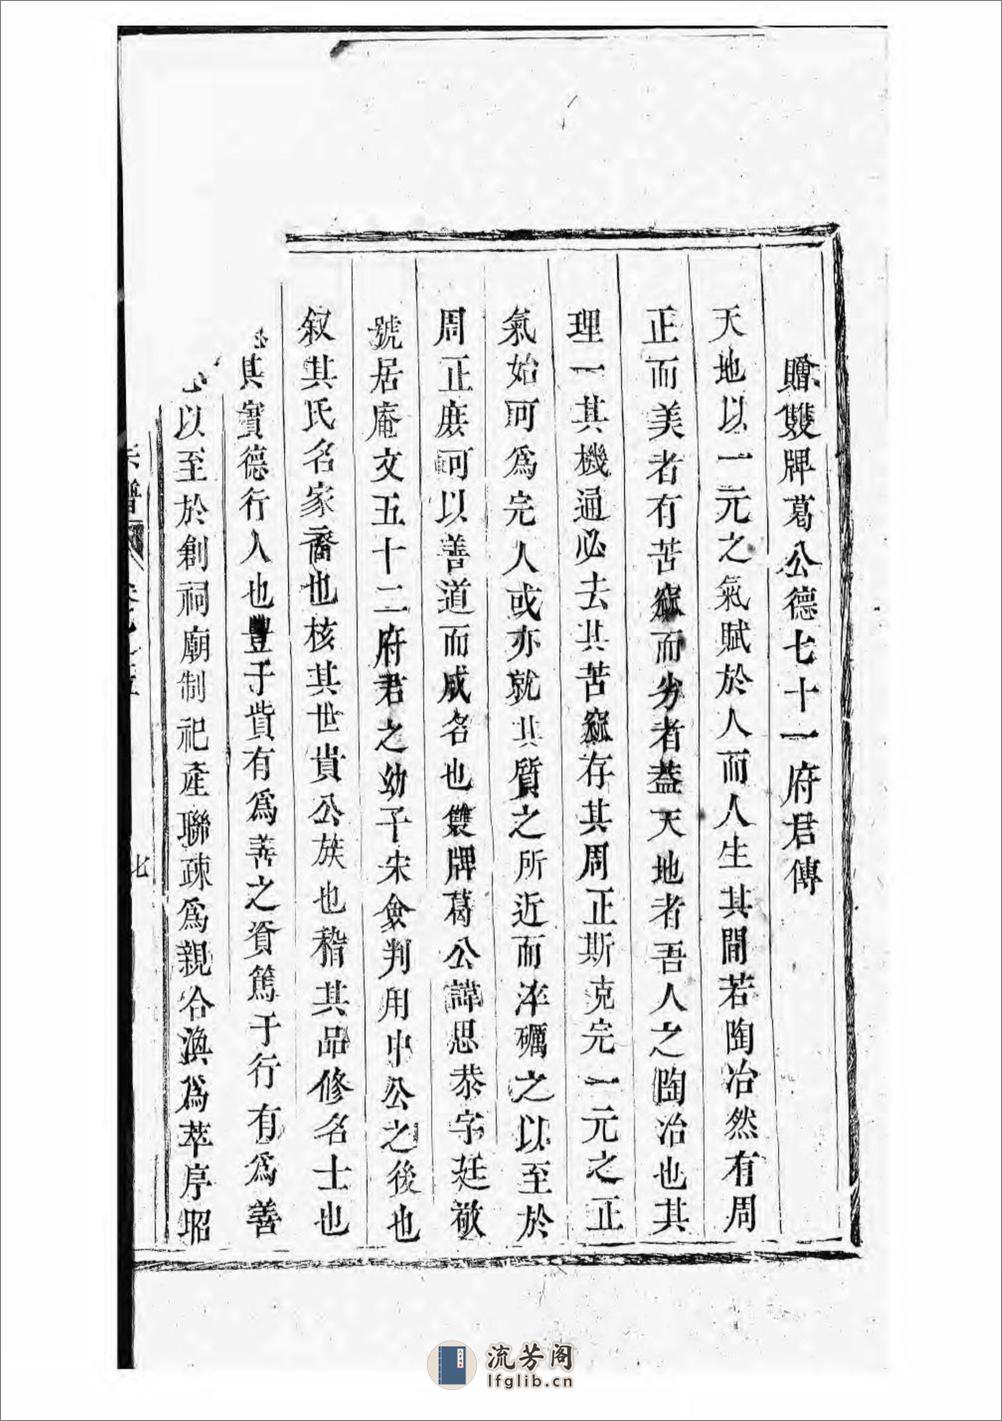 贈雙牌葛公德七十一府君傳
天地以一元之氣賦於人而人生其間若陶冶然有周
正而美者有苦窳而劣者葢天地者吾人之陶冶也其
理一其機通必去其苦窳存其周正斯克完一元之正
氣始可爲完人或亦就其質之所近而淬礪之以至於
周正庶可以善道而成名也雙牌葛公諱思恭字廷敬
號居庵文五十二府君之幼子宋僉判用中公之後也
叙其氏名家裔也核其世貴公族也稽其品修名士也
其實德行人也豐于貲有爲善之資篤于行有爲善
以至於創祠廟制祀產聯疎爲親合渙爲萃序昭
譜
七
流芳阁
lfglib.cn